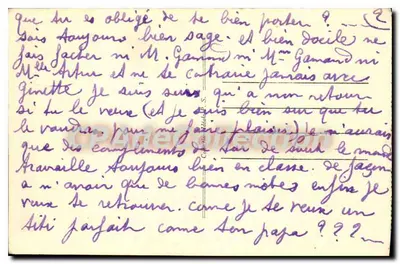 que tu es obligé de te bien porter ? _ 2
sois toujours bien sage et bien docile ne
fais facher ni M. Gamand ni Mme Gamand ni
Mlle et ne te contrarie jamais avec
Ginette Je suis sur qu'a mon retour
si tu le veux (et je suis bien sur que tu
le voudras pour me faire plaisir) je n'aurais
que des compliments de toi de tout le monde
travaille toujours bien en classe. de façon
a n'avoir que de bonnes notes enfin je
veux te retrouver. come je te veux un
titi parfait come ton papa ? ? ?